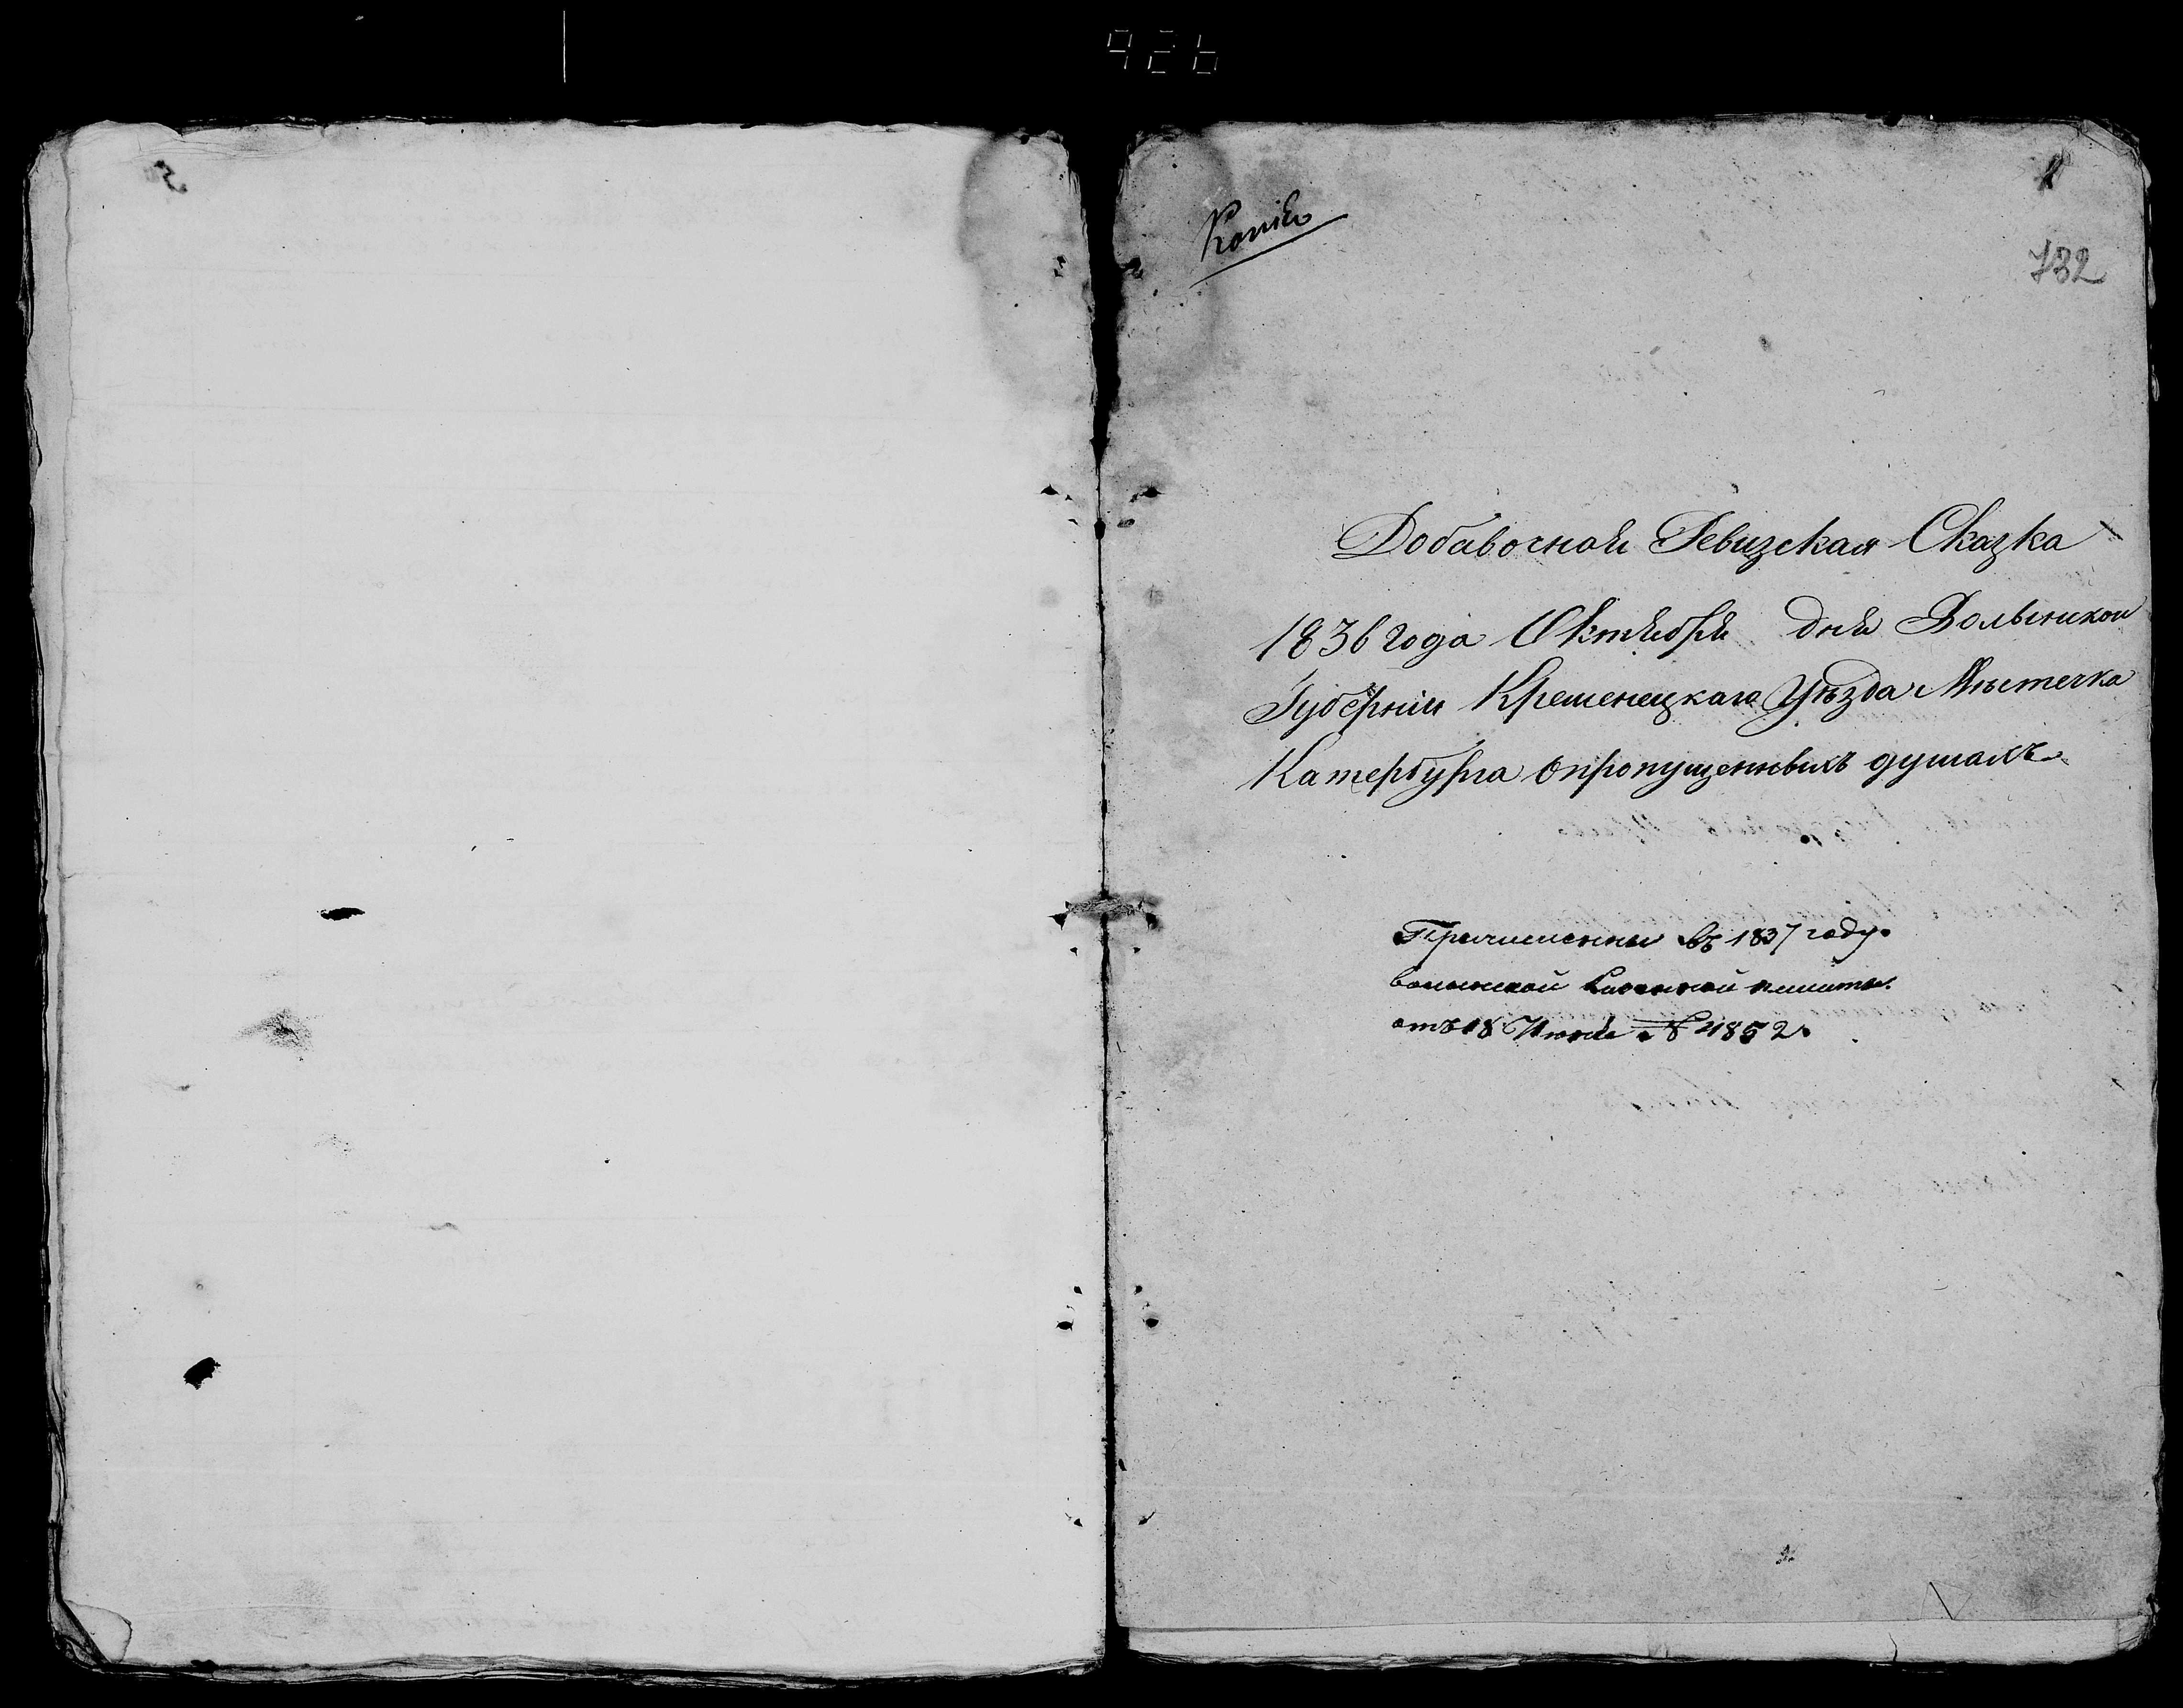 426
Копія
1
732
Добавочная Ревизская Сказка
1836 года Октября дня Волынской
Губерніи Кременецкаго Уѣзда Мѣстечка
Катербурга о пропущенныхъ душахъ
Причислены въ 1837 году
волынской Казенной палаты
отъ 18 Июня № 41852.